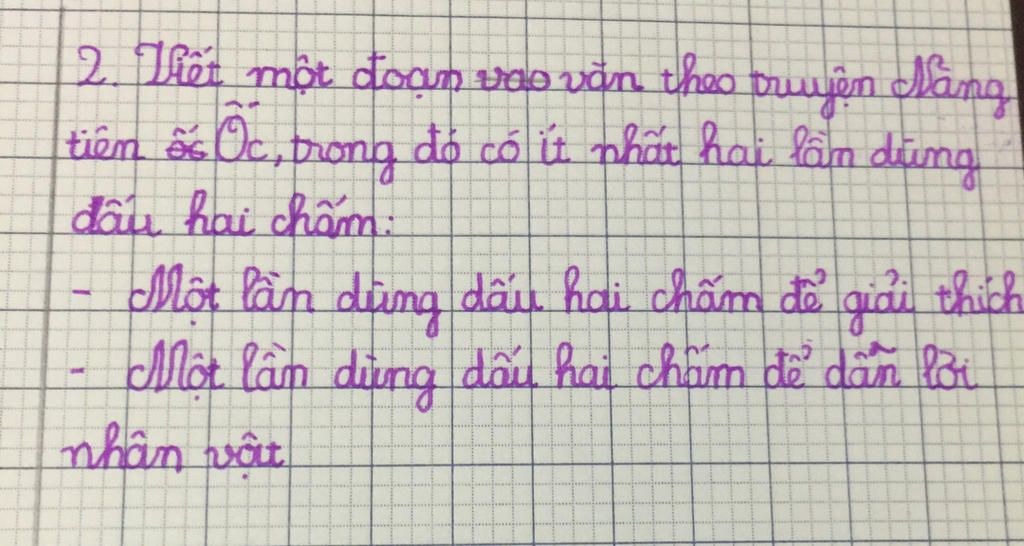 2. Viết một đoạn vào văn theo truyện Nàng
tiên ốc Ốc, trong đó có ít nhất hai lần dùng
dấu hai chấm:
- Một lần dùng dấu hai chấm để giải thích
- Một lần dùng dấu hai chấm để dẫn lời
nhân vật